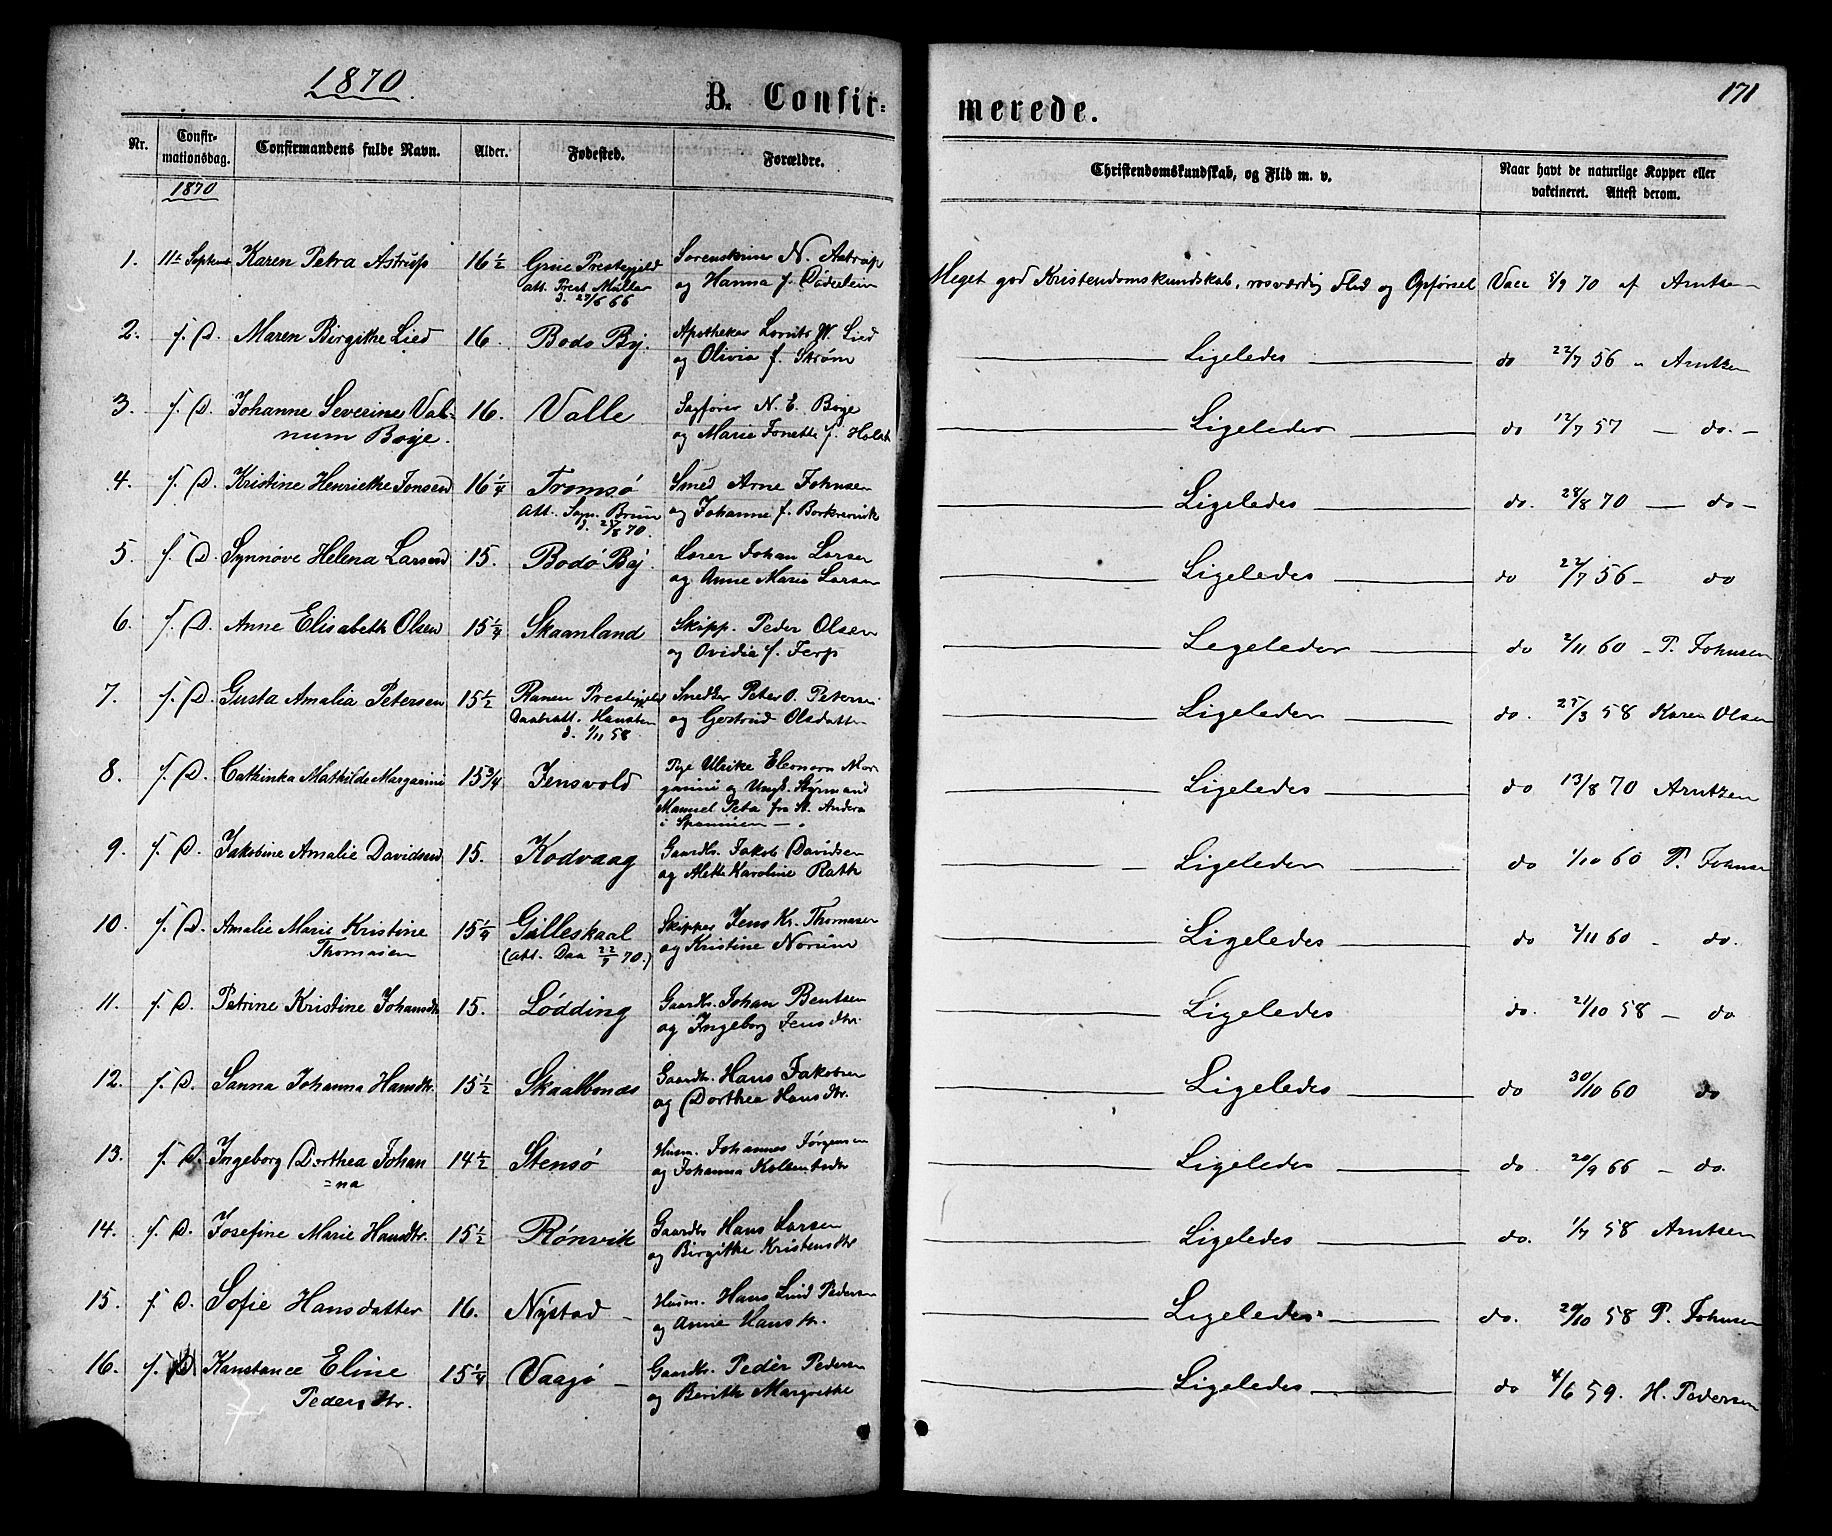 1870
B. Confir-
merede.
171
Nr.
Confir-
mationsdag.
Confirmandens fulde Navn.
Alder.
Fødested.
Forældre.
Christendomskundskab, og Flid m. v.
Naar havt de naturlige Kopper eller
vakcineret. Attest derom.
1870
1. 11te Septemb Karen Petra Astrup 16 1/2 Prestegjeld Sorenskriver N. Astrup
att. Prest Müller og Hanna f. Däderlein
Meget god Kristendomskundskab, rosværdig Flid og Opførsel Vacc 5/9 70 af Arntsen
2. f. D. Maren Birgithe Lied 16. Bodø By. Apotheker W. Lied
og Olivia f. Strøm
Ligeledes do 22/7 56 " Arntsen
3. f. D. Johanne Severine Val- 16. Valle Sagfører N. E. Boye
num Boye. og Marie f. Holst
Ligeledes do 12/7 57 — do. —
4. f. D. Kristine Henriette Jonsen 16 1/4 Tromsø Smed Arne Johnsen
Att. Brun og Johanne f.
Ligeledes do. 28/8 70 — do —
5. f. D. Synnøve Helena Larsen 15. Bodø By. Johan Larsen
og Anne Maria Larsen
Ligeledes do 22/7 56 — do
6. f. D. Anne Elisabeth Olsen 15 1/4 Skaanland Skipp. Peder Olsen
og Ovidia f.
Ligeledes do 2/11 60 — P. Johnsen
7. f. D. Gusta Amalia Petersen 15 1/2 Ranen Prestegjeld Snedker Peter O. Petersen
Daabsatt. og Gertrud Olsdatter
3. 1/11 58
Ligeledes do. 25/3 58 Karen Olsen
8. f. D. Cathinka Mathilde Margarini 15 3/4 Jensvold Pige Ulrike Eleonora Mar-
garini og Ungk. Styrmand
Manuel Peta fra St. Andera
i Spanien —
Ligeledes do 13/8 70 Arntzen
9. f. D. Jakobine Amalie Davidsen 15. Kodvaag Gaardbr. Jakob Davidsen
og Mette Karoline Rath
Ligeledes do 1/10 60 P. Johnsen
10. f. D. Amalie Marie Kristine 15 1/4 Gilleskaal Skipper Jens Kr. Thomasen
Thomasen (att. Daa 22/9 70.) og Kristine Norum
Ligeledes do 2/11 60 — do.
11. f. D. Petrine Kristine Johansdtr 15. Lødding Gaardbr. Johan Bentsen
og Ingeborg Jensdtr.
Ligeledes do. 21/10 58 — do
12. f. D. Sanna Johanna Hansdtr. 15 1/2 Skaalbones Gaardbr. Hans Jakobsen
og Dorthea Hansdtr.
Ligeledes do 30/10 60 do
13. f. D. Ingeborg Dorthea Johan 14 1/2 Stensø Husm. Johannes Jørgensen
=na og Johanna
Ligeledes do. 20/9 66 — do.
14. f. D. Josefine Marie Hansdtr. 15 1/2 Rønvik Gaardbr Hans Larsen
og Birgithe Kristensdtr
Ligeledes do. 1/7 58 Arntsen
15. f. D. Sofie Hansdatter 16. Nystad — Husm. Hans Lind Pedersen
og Anne Hansdtr.
Ligeledes. do. 20/10 58 P. Johnsen
16. f. D Konstance Eline 15 1/4 Vaagø — Gaardbr. Peder Pedersen
Pedersdtr. og Berith Margrethe
Ligeledes do 4/6 59. H. Pedersen
7